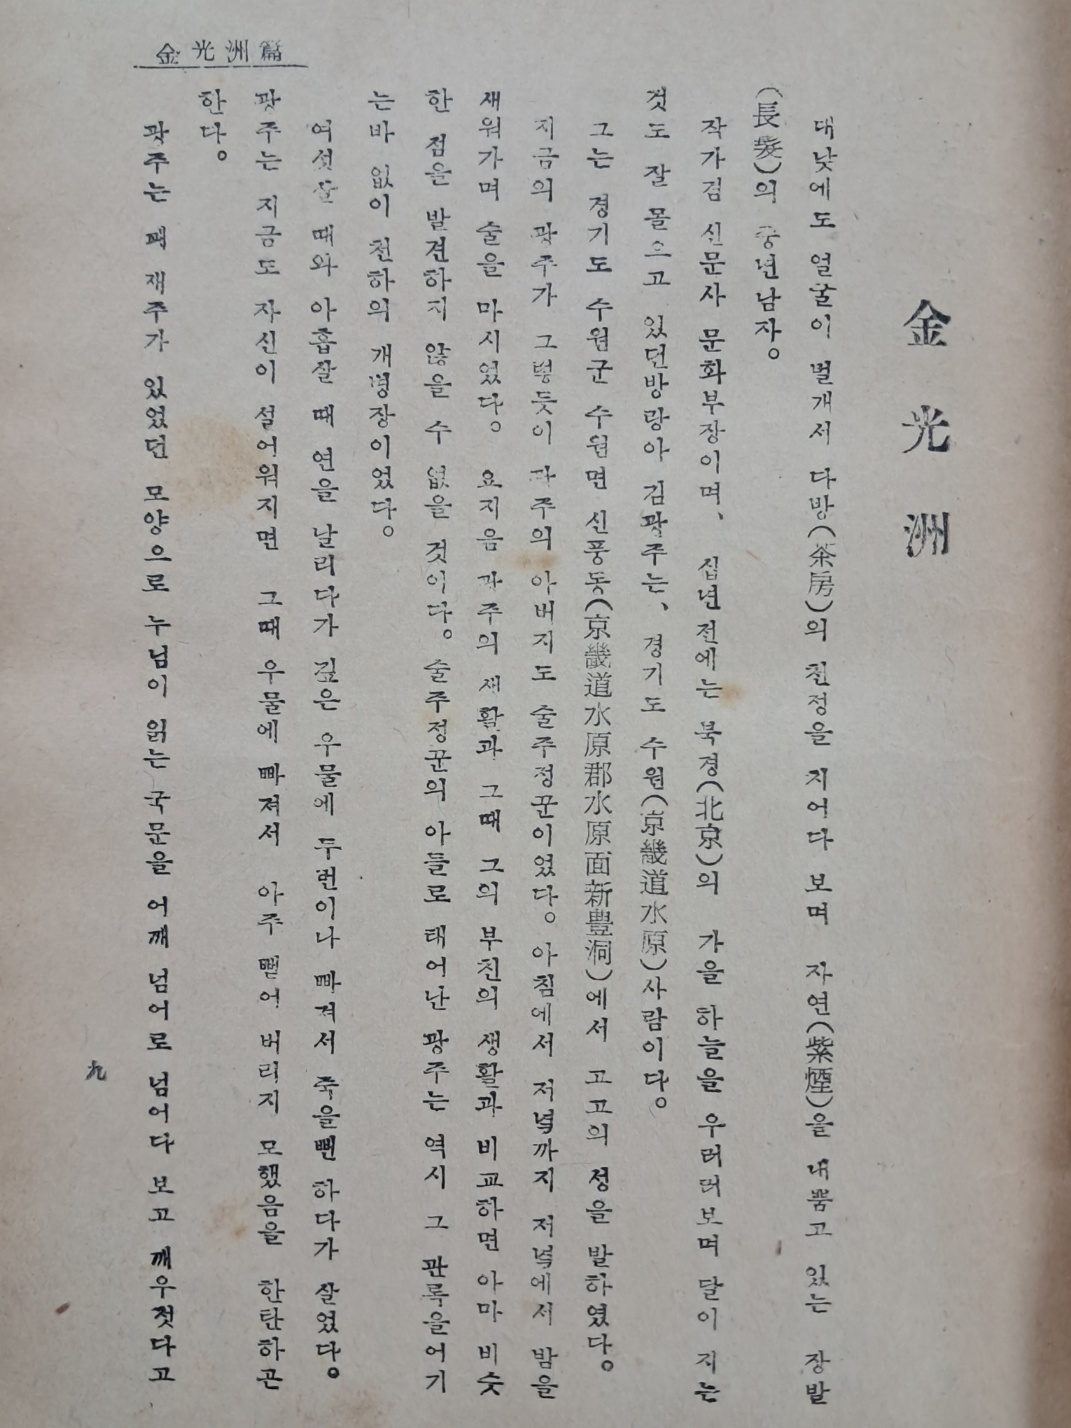 金光洲篇
金光洲
대낮에도 얼굴이 벌개서 다방(茶房)의 천정을 치어다 보며 자연(紫煙)을 내뿜고 있는 장발
(長髮)의 중년남자。
작가겸 신문사 문화부장이며、 십년전에는 북경(北京)의 가을 하늘을 우러러보며 달이 지는
것도 잘 몰으고 있던방랑아 김광주는、 경기도 수원(京畿道水原)사람이다。
그는 경기도 수원군 수원면 신풍동(京畿道水原郡水原面新豊洞)에서 고고의 성을 발하였다。
지금의 광주가 그렇듯이 광주의 아버지도 술주정꾼이였다。아침에서 저녁까지 저녁에서 밤을
새워가며 술을 마시였다。 요지음 광주의 생활과 그때 그의 부친의 생활과 비교하면 아마 비슷
한 점을 발견하지 않을 수 없을 것이다。술주정꾼의 아들로 태어난 광주는 역시 그 관록을어기
는바 없이 천하의 개병장이였다。
여섯살 때와 아홉살 때 연을 날리다가 깊은 우물에 두번이나 빠져서 죽을뻔 하다가 살었다。
광주는 지금도 자신이 설어워지면 그때 우물에 빠져서 아주 뻗어 버리지 못했음을 한탄하곤
한다。
광주는 꽤 재주가 있었던 모양으로 누님이 읽는 국문을 어깨 넘어로 넘어다 보고 깨우첫다고
九